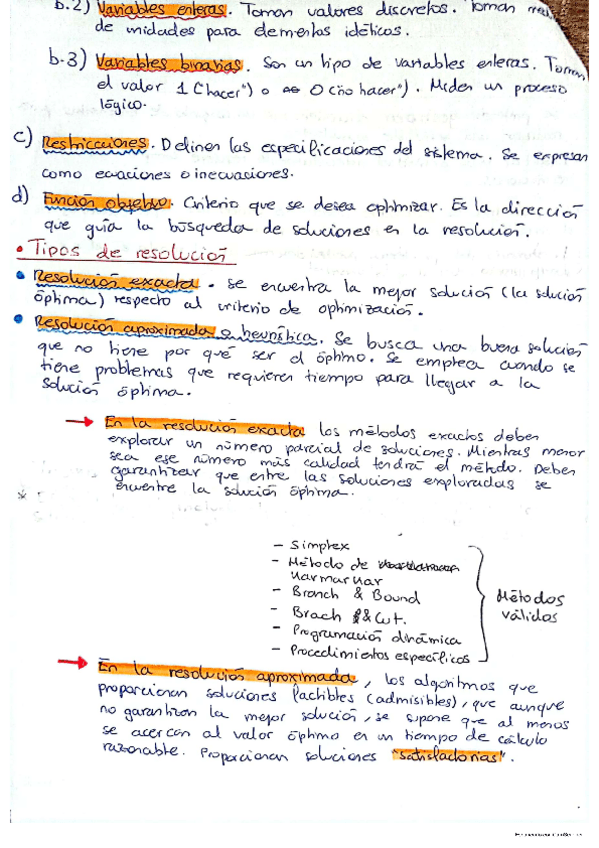 b.2) Variables enteras. Toman valores discretos. Toman
de unidades para elementos idéticos.
b.3) Variables binarias. Son un tipo de variables enteras. Toman
el valor 1 ("hacer") o 0 ("no hacer"). Miden un proceso
lógico.
c) Restricciones. Definen las especificaciones del sistema. Se expresan
como ecuaciones o inecuaciones.
d) Función objetivo. Criterio que se desea optimizar. Es la dirección
que guía la búsqueda de soluciones en la resolución.
• Tipos de resolución
• Resolución exacta. se encuentra la mejor solución (la solución
óptima) respecto al criterio de optimización.
• Resolución aproximada o heurística. Se busca una buena solución
que no tiene por qué ser el óptimo. Se emplea cuando se
tiene problemas que requieren tiempo para llegar a la
solución óptima.
→ En la resolución exacta los métodos exactos deben
explorar un número parcial de soluciones. Mientras menor
sea ese número más calidad tendrá el método. Deben
garantizar que entre las soluciones exploradas se
encuentre la solución óptima.
- Simplex
- Método de
Karmarkar
- Branch & Bound
- Brach & Cut.
- Programación dinámica
- Procedimientos específicos
Métodos
válidos
→ En la resolución aproximada, los algoritmos que
proporcionan soluciones factibles (admisibles), que aunque
no garantizan la mejor solución, se supone que al menos
se acercan al valor óptimo en un tiempo de cálculo
razonable. Proporcionan soluciones "satisfactorias".